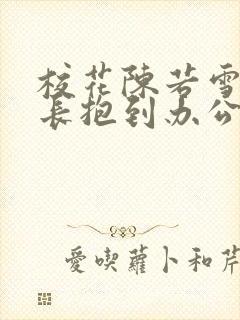 校花陳若雪
長抱到办公
愛喫蘿卜和芹